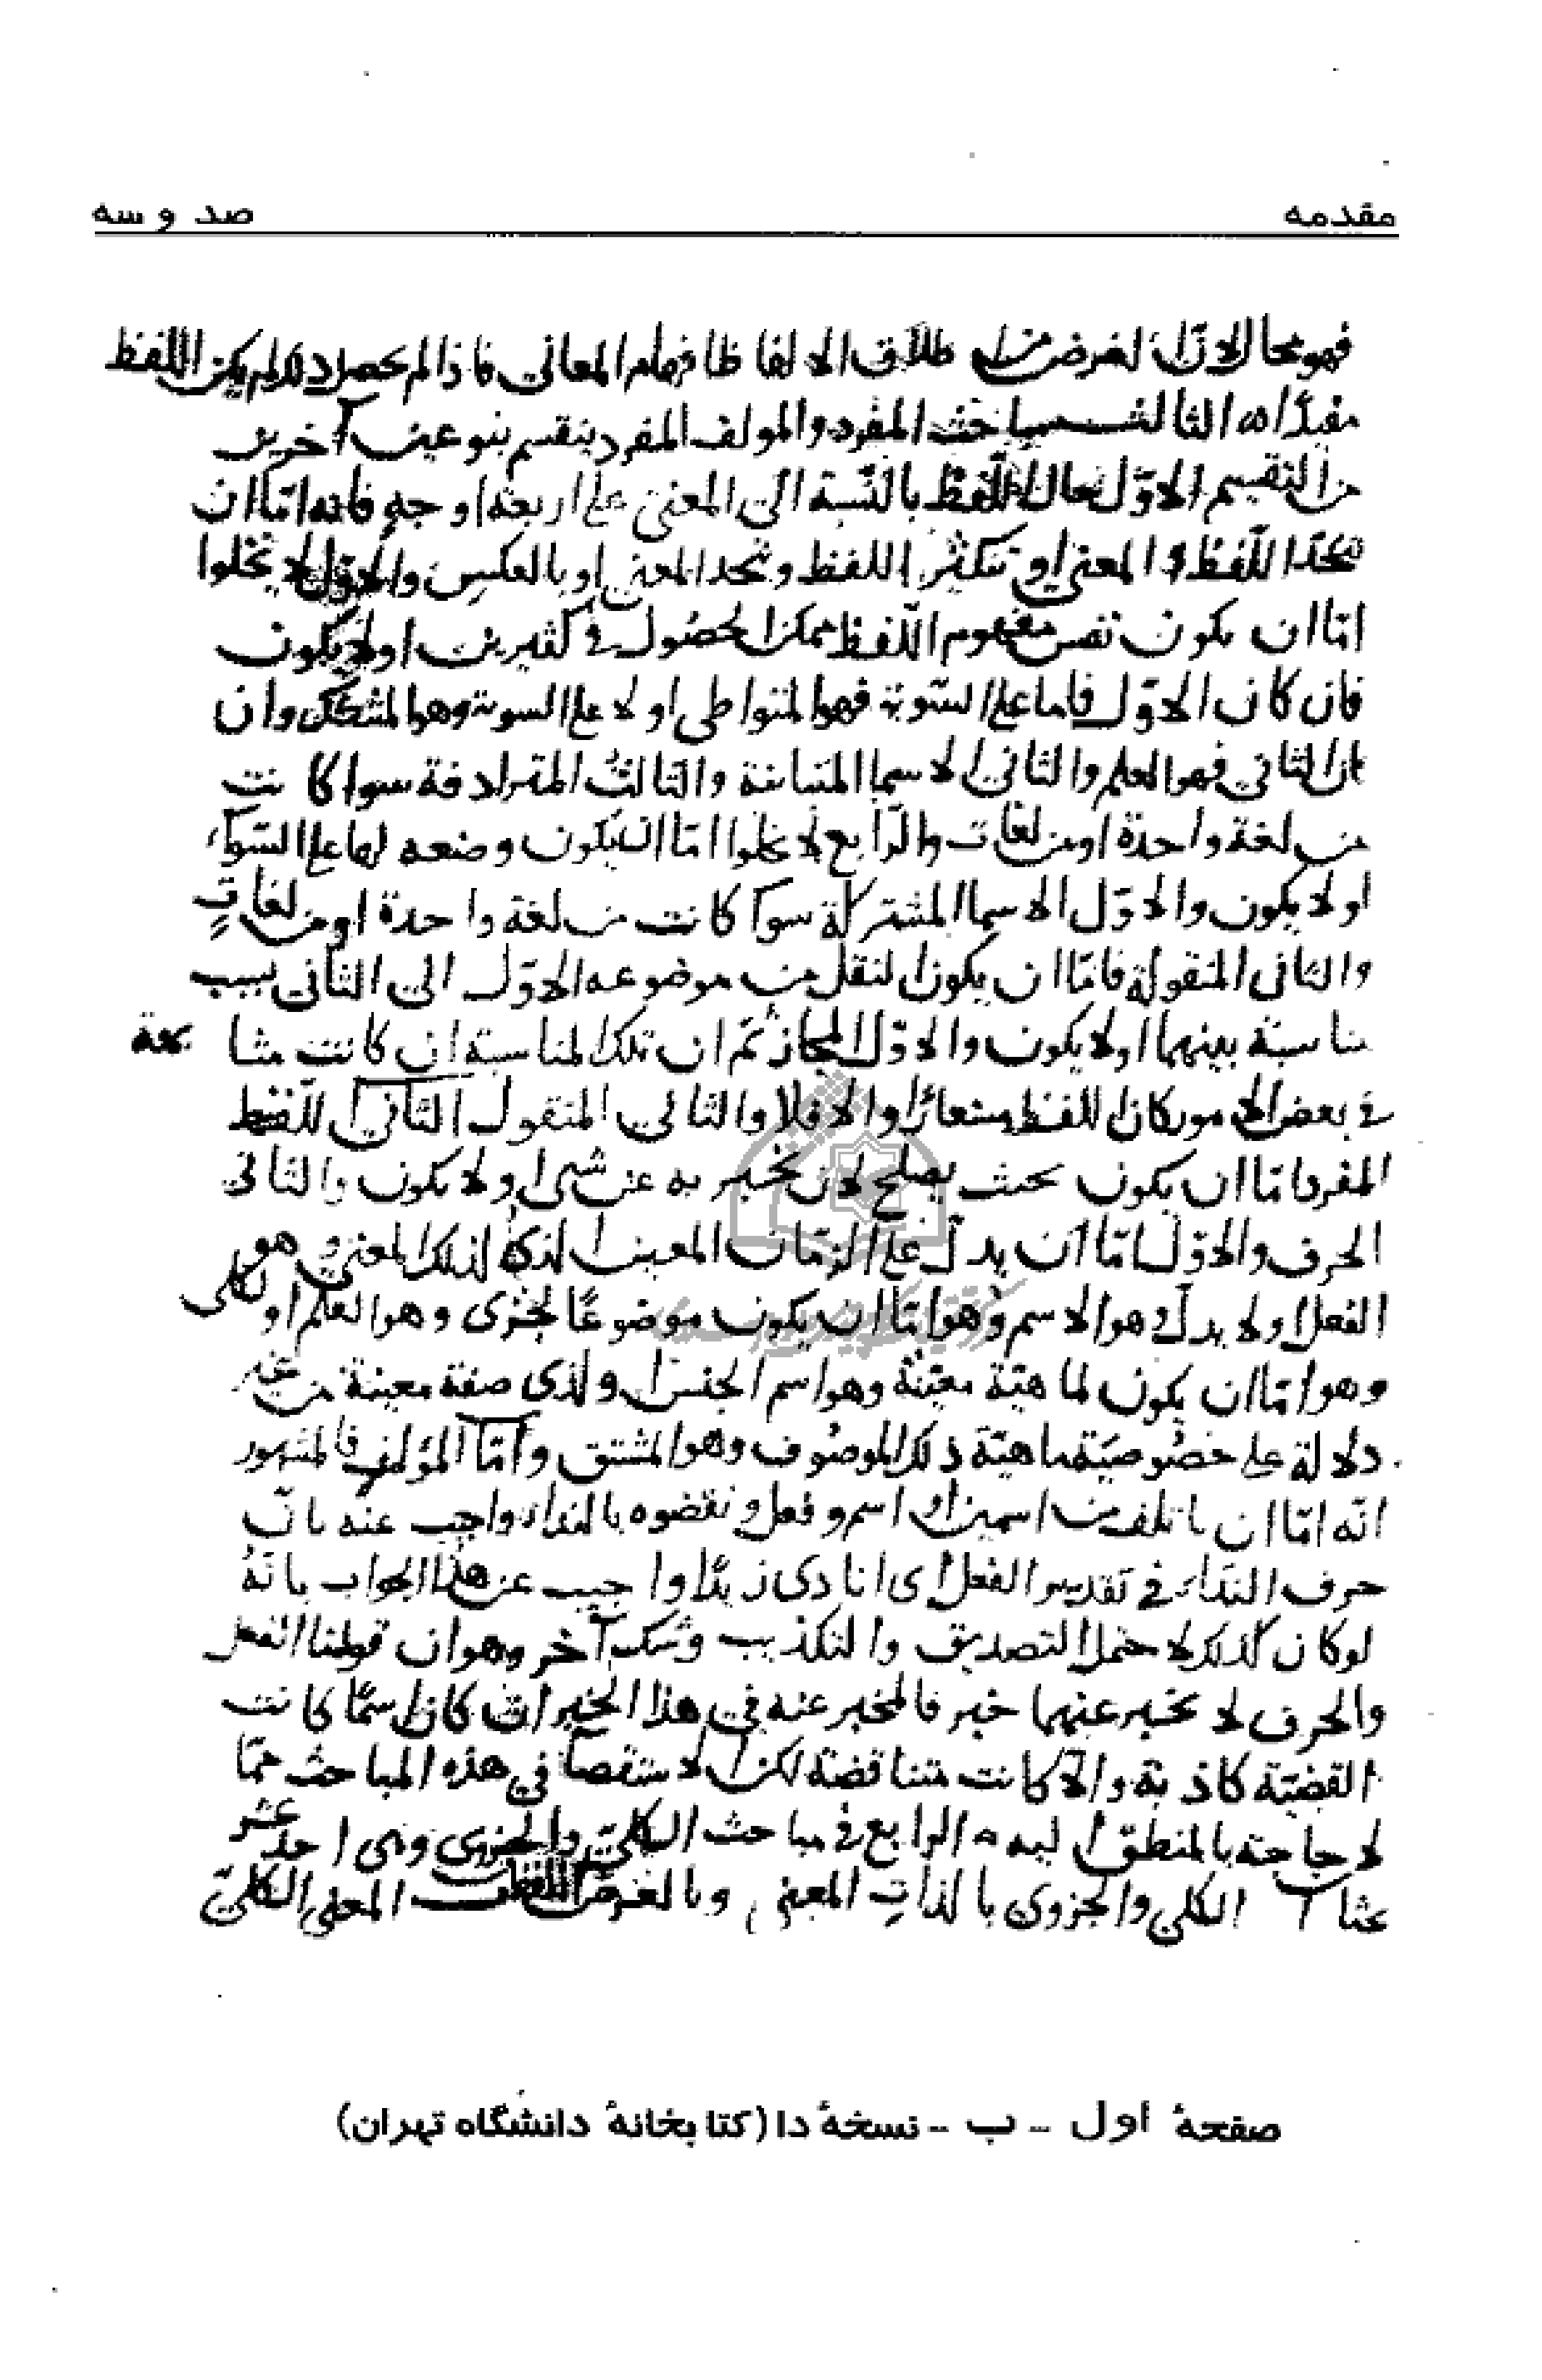 مقدمه
صد و سه
فهو محال لان الغرض من اطلاق الالفاظ افهام المعانى فاذا لم يحصل ذلك لم يكن اللفظ
مفيدًا ه الثالث مباحث المفرد والمولف المفرد ينقسم بنوعين آخرين
من التقسيم الاوّل حال اللّفظ بالنّسبة الى المعنى على اربعة اوجهٍ فانه امّا ان
يتحدا اللّفظ و المعنى او تتكثر اللفظ ويتحد المعنى او بالعكس والاول لا يخلوا
امّا ان يكون نفس مفهوم اللّفظ ممكن الحصُول فى كثيرين او لا يكون
فان كان الاوّل فاما على السّوية فهو المتواطى او لا على السوية وهو المشكك وان
كان الثانى فهو العلم والثانى الاسما المتباينة والثالثُ المترادفة سوا كانت
من لغة واحدة او من لغات والرّابع لا يخلوا امّا ان يكون وضعه لها على السّواء
او لا يكون والاوّل الاسما المشتركة سوآ كانت من لغة واحدة او من لغاتٍ
والثانى المنقولة فامّا ان يكون النقل من موضوعه الاوّل الى الثانى بسبب
مناسبة بينهما او لا يكون والاوّل المجاز ثمّ ان تلك المناسبة ان كانت مشا بهة
فى بعض الامور كان اللفظ مستعارًا والا فلا والثانى المنقول الثانى اللّفظ
المفرد امّا ان يكون بحيث يصلح لان يخبر به عن شى او لا يكون والثانى
الحرف والاوّل امّا ان يدلّ على الزمان المعين الذى لذلك المعنى وهو
الفعل او لا يدلّ وهو الاسم وهو امّا ان يكون موضوعًا لجزى وهو العلم او لكلى
وهو امّا ان يكون لماهيّة معيّنة وهو اسم الجنس او لذى صفة معينة من غير
دلالة على خصُوصيّة ماهيّة ذلك الموصُوف وهو المشتق وامّا المؤلف فالمشهور
انّه امّا ان ياتلف من اسمين او اسم و فعل و نقضوه بالنداء واجيب عنه بانّ
حرف النّداء فى تقدير الفعل اى انادى زيدًا و اجيب عن هذا الجواب بانّهُ
لو كان كذلك لاحتمل التصديق والتكذيب وشك آخر وهو ان قولنا الفعل
والحرف لا يخبر عنهما خبر فالمخبر عنه فى هذا الخبر ان كان اسمًا كانت
القضيّة كاذبة والّا كانت متناقضة لكن الاستقصآ فى هذه المباحث ممّا
لا حاجة بالمنطقى اليه ه الرابع فى مباحث الكلىّ والجزوى وهى احد عشر
بحثا ا الكلى والجزوى بالذاتِ المعنى وبالعرض اللفظ المعنى الكلىّ
صفحهٔ اول -- ب -- نسخهٔ دا (کتابخانهٔ دانشگاه تهران)